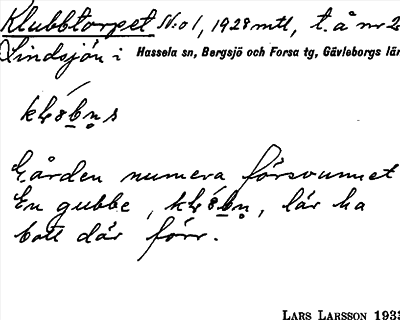 Klubbtorpet No 1, 1928 mtl, t. å nr 2
Lindsjön i Hassela sn, Bergsjö och Forsa tg, Gävleborgs län
Gården numera försvunnet
En gubbe, lär ha
bott där förr.
LARS LARSSON 1933